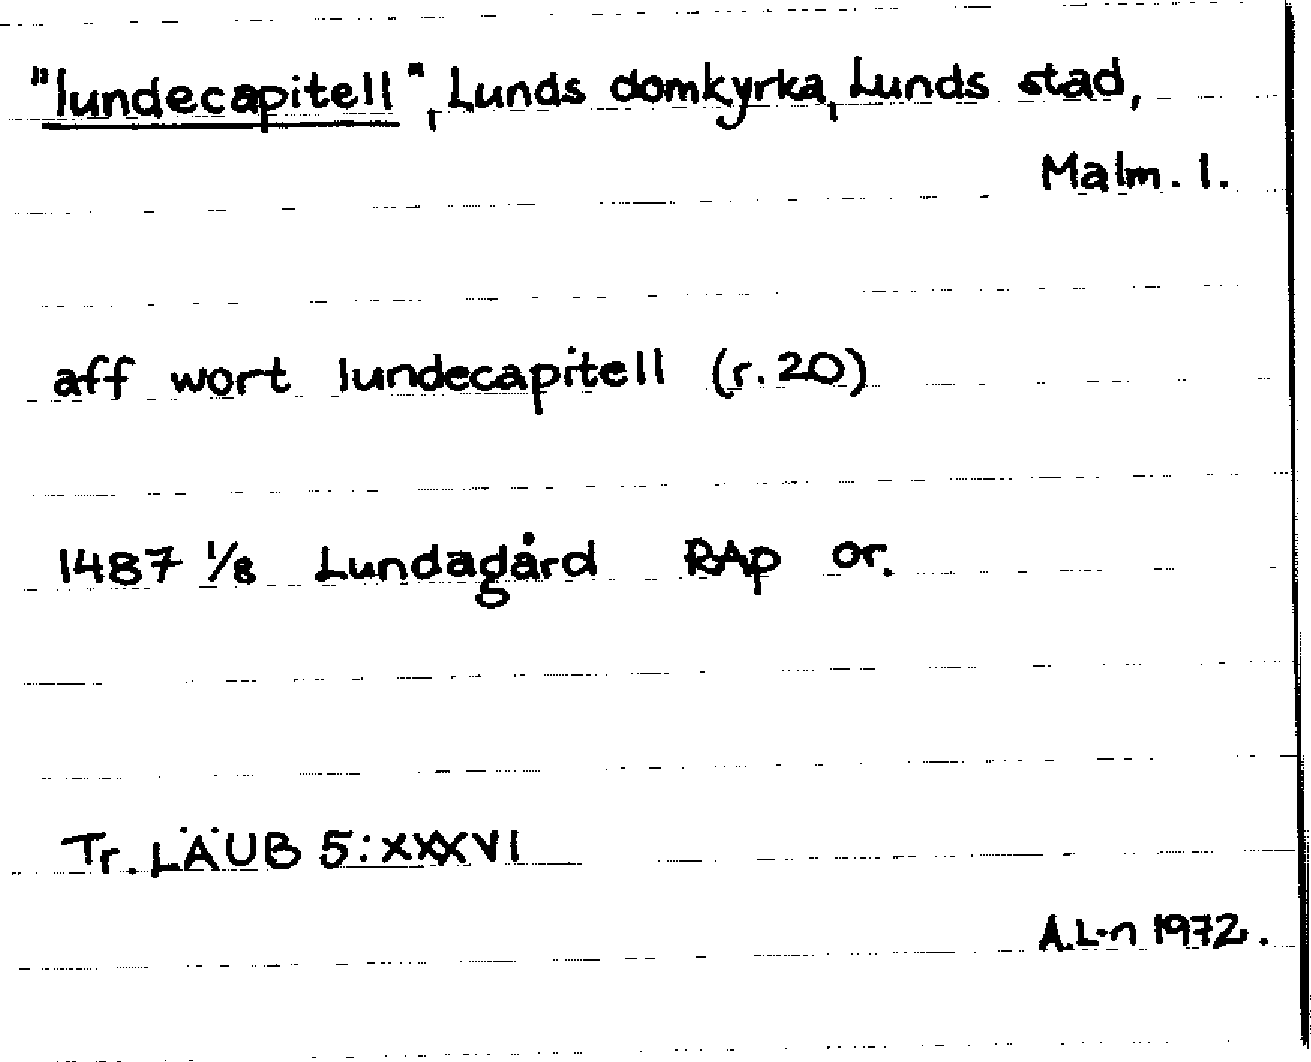 "lundecapitell", Lunds domkyrka, Lunds stad,
Malm. l.
aff wort lundecapitell (r. 20)
1487 1/8 Lundagård RAp or.
Tr. LÄUB 5:XXXVI
A.L-n 1972.